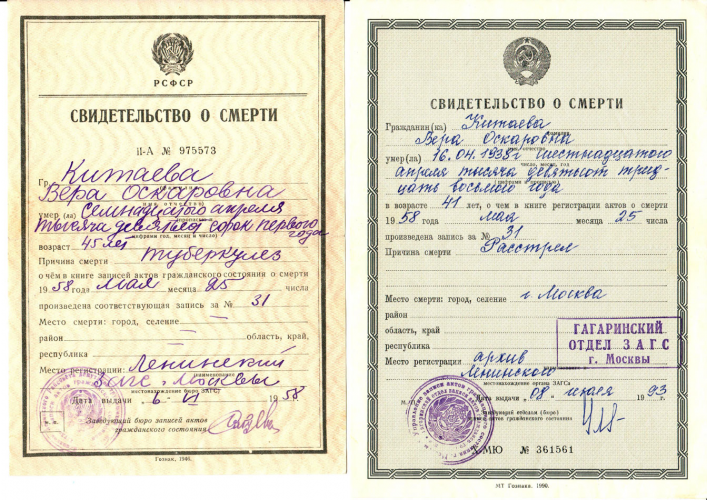 РСФСР
СВИДЕТЕЛЬСТВО О СМЕРТИ
II-А № 975573
Гр. Китаева
Вера Оскаровна
умер (ла) Семнадцатого апреля
тысяча девятьсот сорок первого
года
возраст 45 лет
Причина смерти Туберкулез
о чём в книге записей актов гражданского состояния о смерти
1958 года мая месяца 25 числа
произведена соответствующая запись за № 31
Место смерти: город, селение —
район — область, край,
республика
Место регистрации: Ленинский
наименование
Загс г. Москвы
местонахождение бюро ЗАГС
Дата выдачи 6 VI 1958
М.П.
Заведующий бюро записей актов
гражданского состояния
Гознак. 1946.
СВИДЕТЕЛЬСТВО О СМЕРТИ
Гражданин (ка) Китаева
фамилия
Вера Оскаровна
имя, отчество
умер (ла) 16.04.1938г шестнадцатого
число, месяц, год
апреля тысяча девятьсот трид-
цать восьмого года
в возрасте 41 лет, о чем в книге регистрации актов о смерти
1958 года мая месяца 25 числа
произведена запись за № 31
Причина смерти Расстрел
Место смерти: город, селение г. Москва
район
область, край
республика
Место регистрации архив
Ленинского
местонахождение органа ЗАГСа
ГАГАРИНСКИЙ
ОТДЕЛ ЗАГС
г. Москвы
Дата выдачи „08" июля 1993 г.
Заведующий отделом (бюро)
записи актов гражданского состояния
-МЮ № 361561
МТ Гознака. 1990.